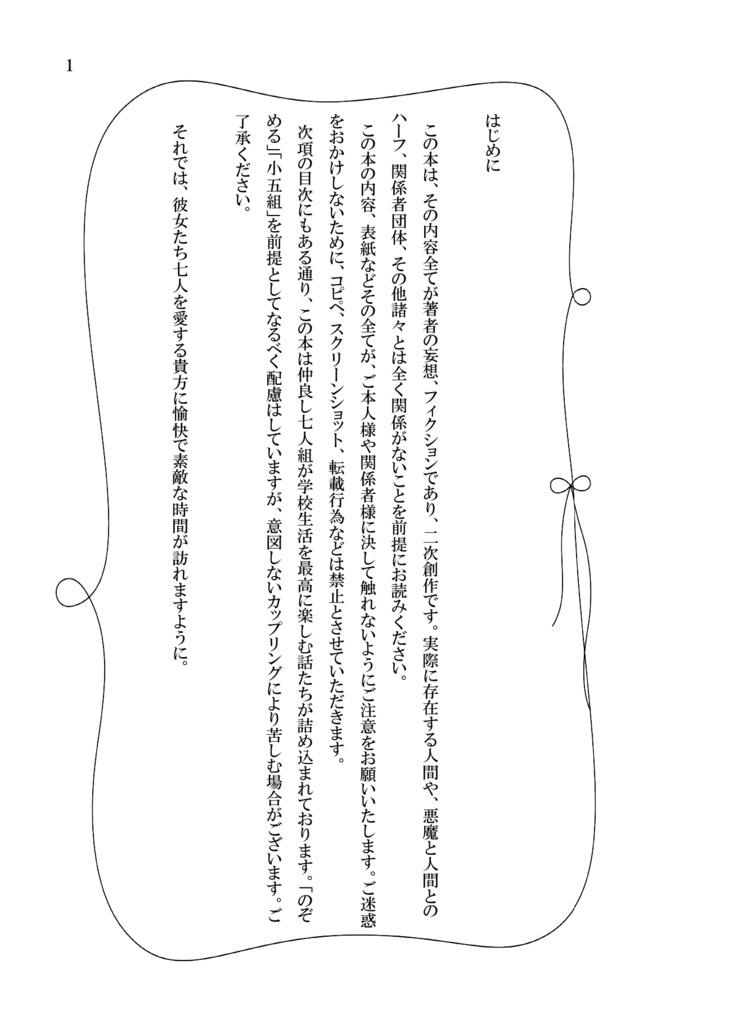 1
はじめに
この本は、その内容全てが著者の妄想、フィクションであり、二次創作です。実際に存在する人間や、悪魔と人間との
ハーフ、関係者団体、その他諸々とは全く関係がないことを前提にお読みください。
この本の内容、表紙などその全てが、ご本人様や関係者様に決して触れないようにご注意をお願いいたします。ご迷惑
をおかけしないために、コピペ、スクリーンショット、転載行為などは禁止とさせていただきます。
次項の目次にもある通り、この本は仲良し七人組が学校生活を最高に楽しむ話たちが詰め込まれております。「のぞ
める」「小五組」を前提としてなるべく配慮はしていますが、意図しないカップリングにより苦しむ場合がございます。ご
了承ください。
それでは、彼女たち七人を愛する貴方に愉快で素敵な時間が訪れますように。